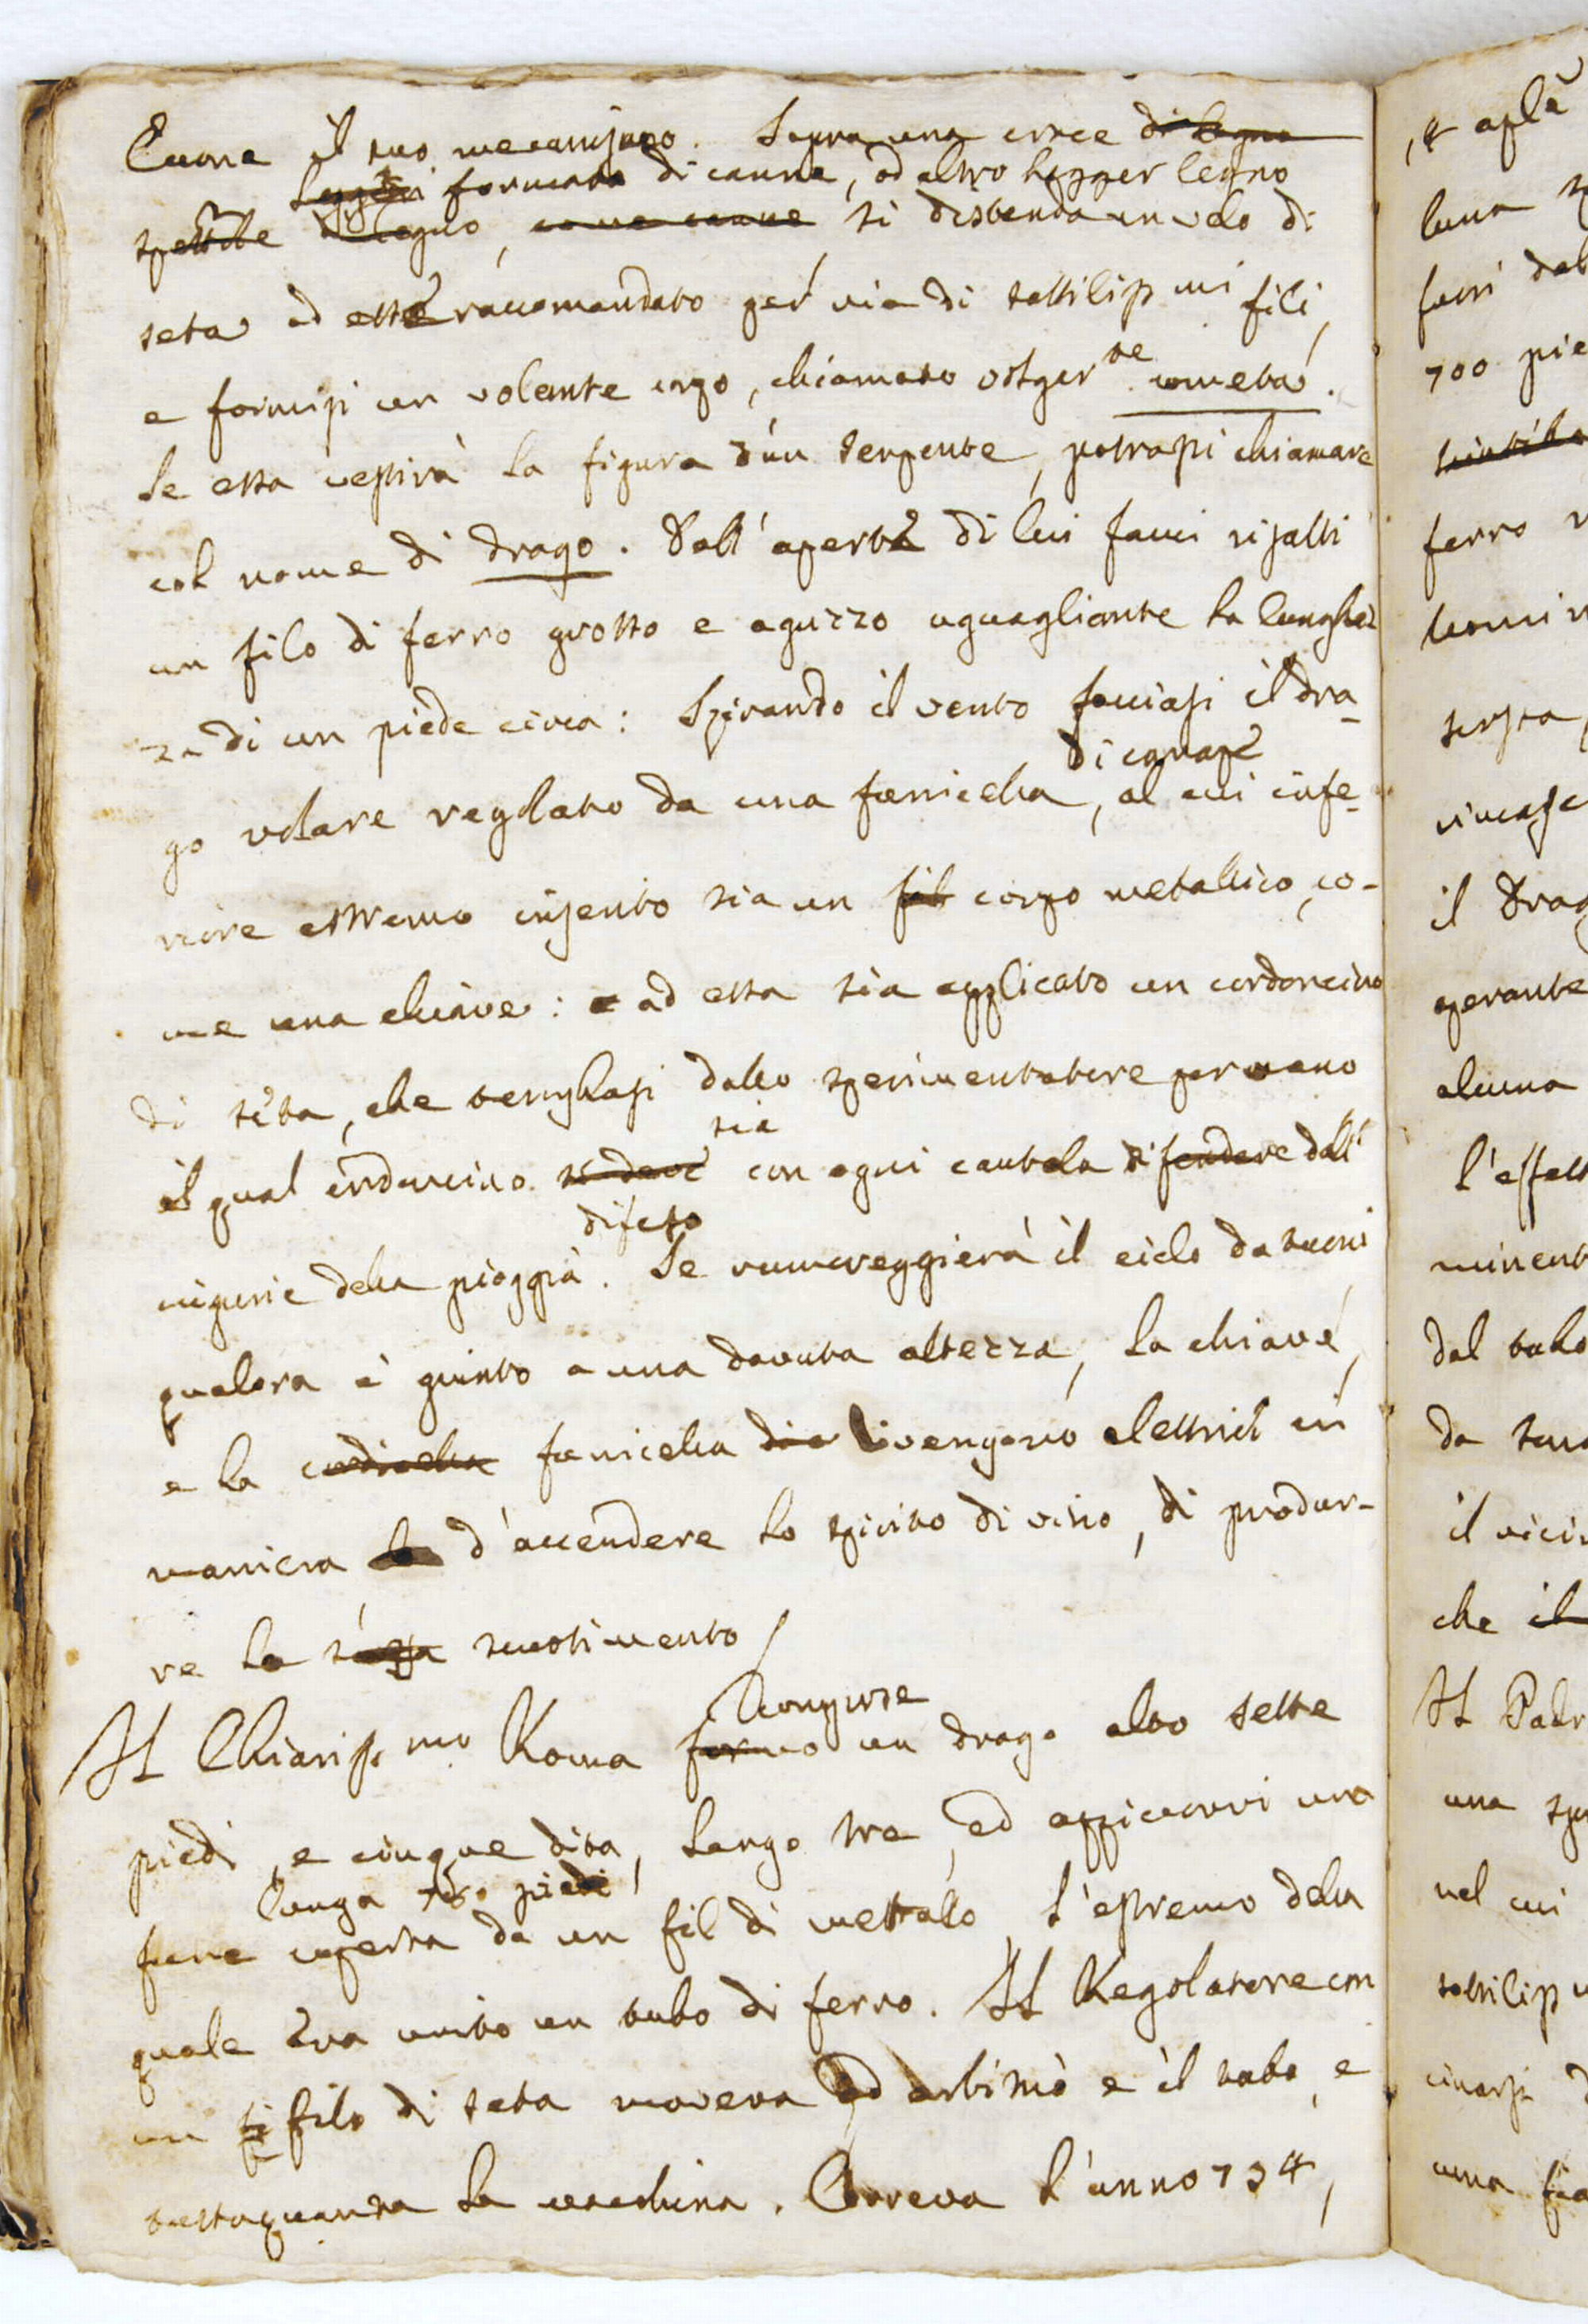 Eccone il suo mecanismo. Sopra una croce di legno
leggeri formata di canna, od altro legger legno
di legno, come canne si distenda un velo di
seta ad essa raccomandato per via di sottilissmi fili,
e formisi un volante corpo, chiamato volgarte cometa.
Se essa vestirà la figura d'un serpente, potrassi chiamare
col nome di drago. Dall'aperta di lui fauci risalti
un filo di ferro grosso e aguzzo uguagliante la lunghez
za di un piede circa: Spirando il vento facciasi il dra-
go volare regolato da una funicella, al cui infe-
di canape
riore estremo inserito sia un fil corpo metallico, co-
me una chiave: e ad essa sia applicato un cordoncino
di seta, che tenghasi dallo sperimentatore per mano
sia
il qual cordoncino si deve con ogni cautela difendere dall'
difeso
ingiurie della pioggia. Se rumoreggierà il cielo da tuoni
qualora è giunto a una dovuta altezza, la chiave,
e la cordicella funicella divengono elettrici in
maniera la d'accendere lo spirito di vino, di produr-
re lo scuotimento
Il Chiarissmo Roma formo un drago alto sette
Compose
piedi, e cinque dita, largo tre, ed appiccovvi una
lunga 780 piedi
fune coperta da un fil di mettallo, l'estremo della
quale era unito un tubo di ferro. Il Regolatore con
un fi filo di seta moveva ad arbitrio e il tubo, e
tuttaquanta la macchina. Correva l'anno 754,
, & aplà
luna
fuori dal
700 pie
ferro
uomin
il Drag
perante
alcuna
l'effett
minent
dal tubo
da
il vici
che il
Il Padr
una
nel cui
sottiliss
una